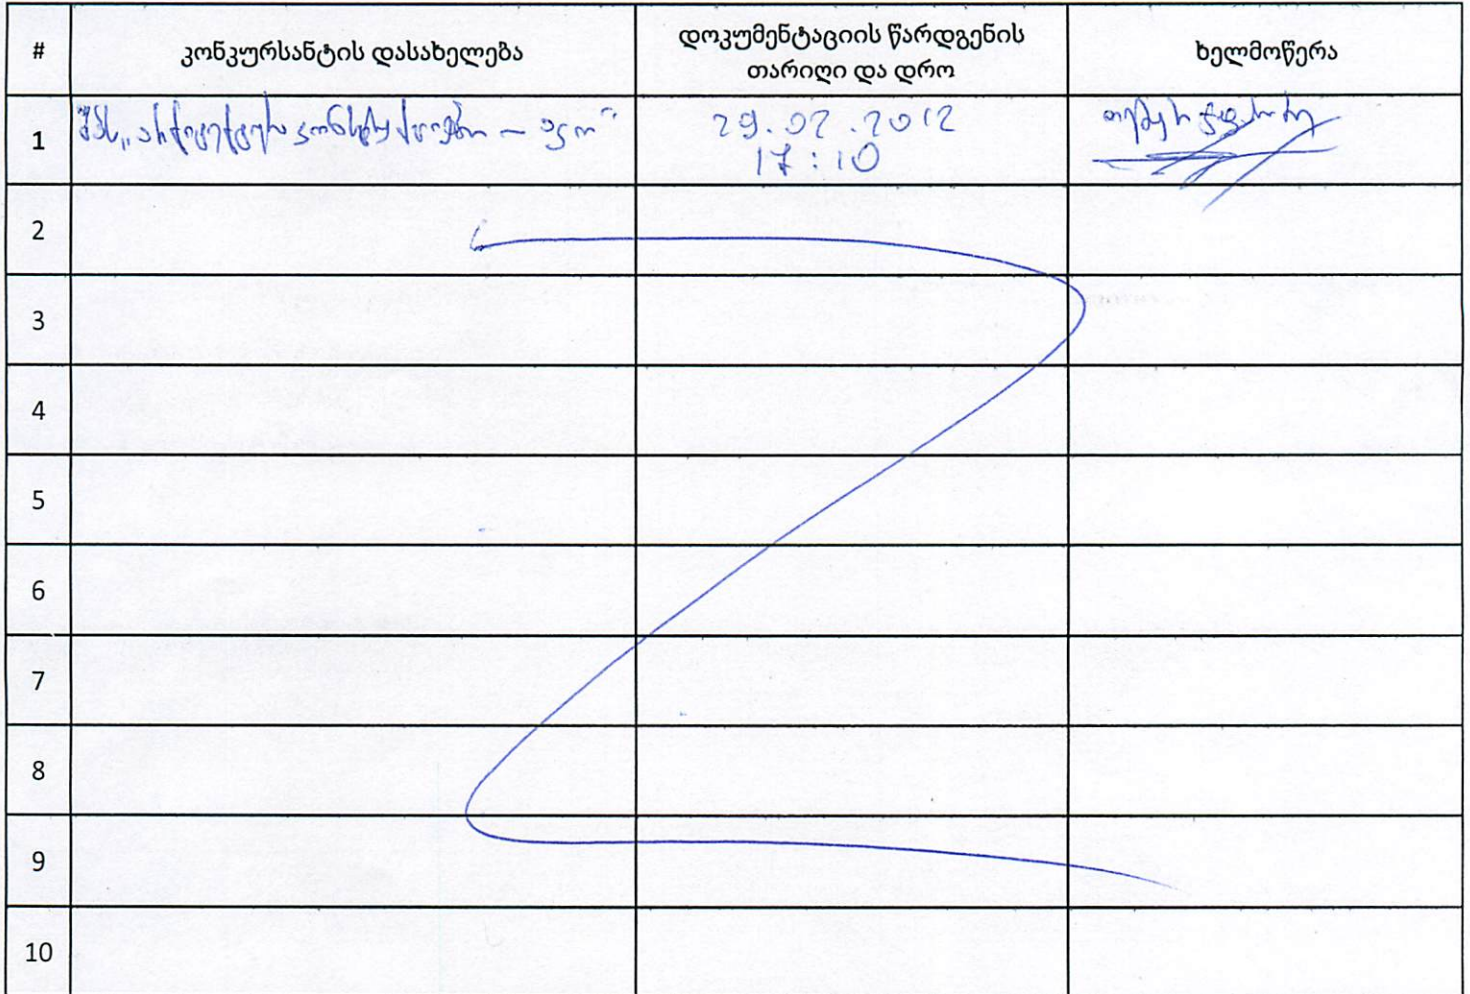 #
კონკურსანტის დასახელება
დოკუმენტაციის წარდგენის
თარიღი და დრო
ხელმოწერა
1
შპს „არქიტექტურა
29.02.2012
17:10
2
3
4
5
6
7
8
9
10